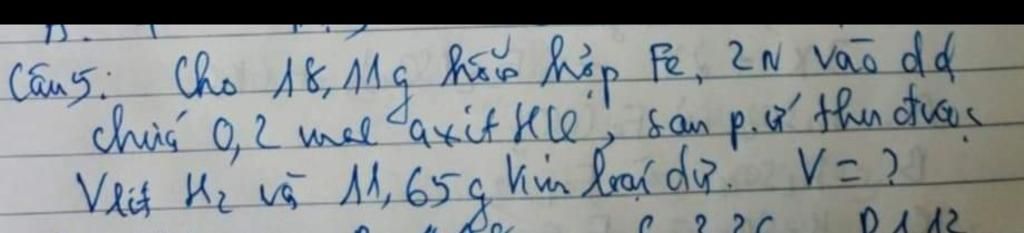 Câu 5: Cho 18,11g hỗn hợp Fe, ZN vào dd
chứa 0,2 mol axit HCl, sau p.ứ thu được
V lít H2 và 11,65g kim loại dư. V = ?
C 2,26 D 1,12